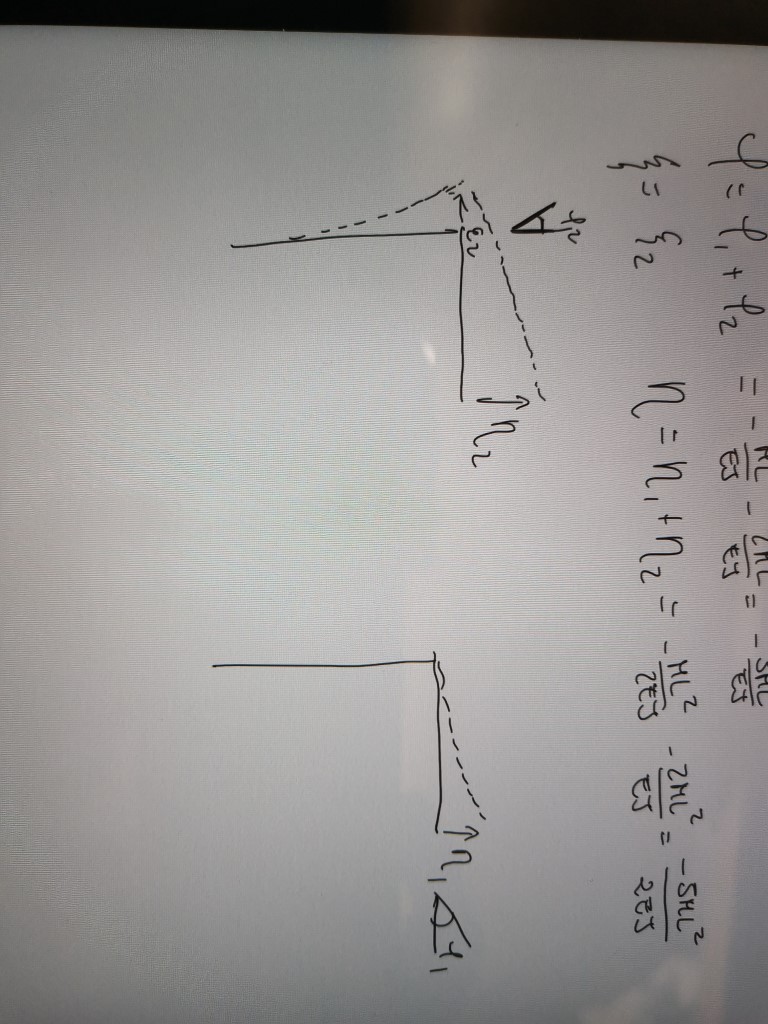 φ = φ₁ + φ₂ = - ML/EJ - 2ML/EJ = - 3ML/EJ
ξ = ξ₂ η = η₁ + η₂ = - ML²/2EJ - 2ML²/EJ = -5ML²/2EJ
φ₂
ξ₂
η₂
η₁ φ₁